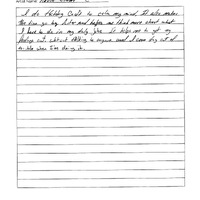 I do Hobby Craft to calm my mind. It also makes
the time go by faster and helps me think more about what
I have to do in my daily life. It helps me to get my
feelings out without talking to anyone and I can stay out of
trouble when I'm doing it.